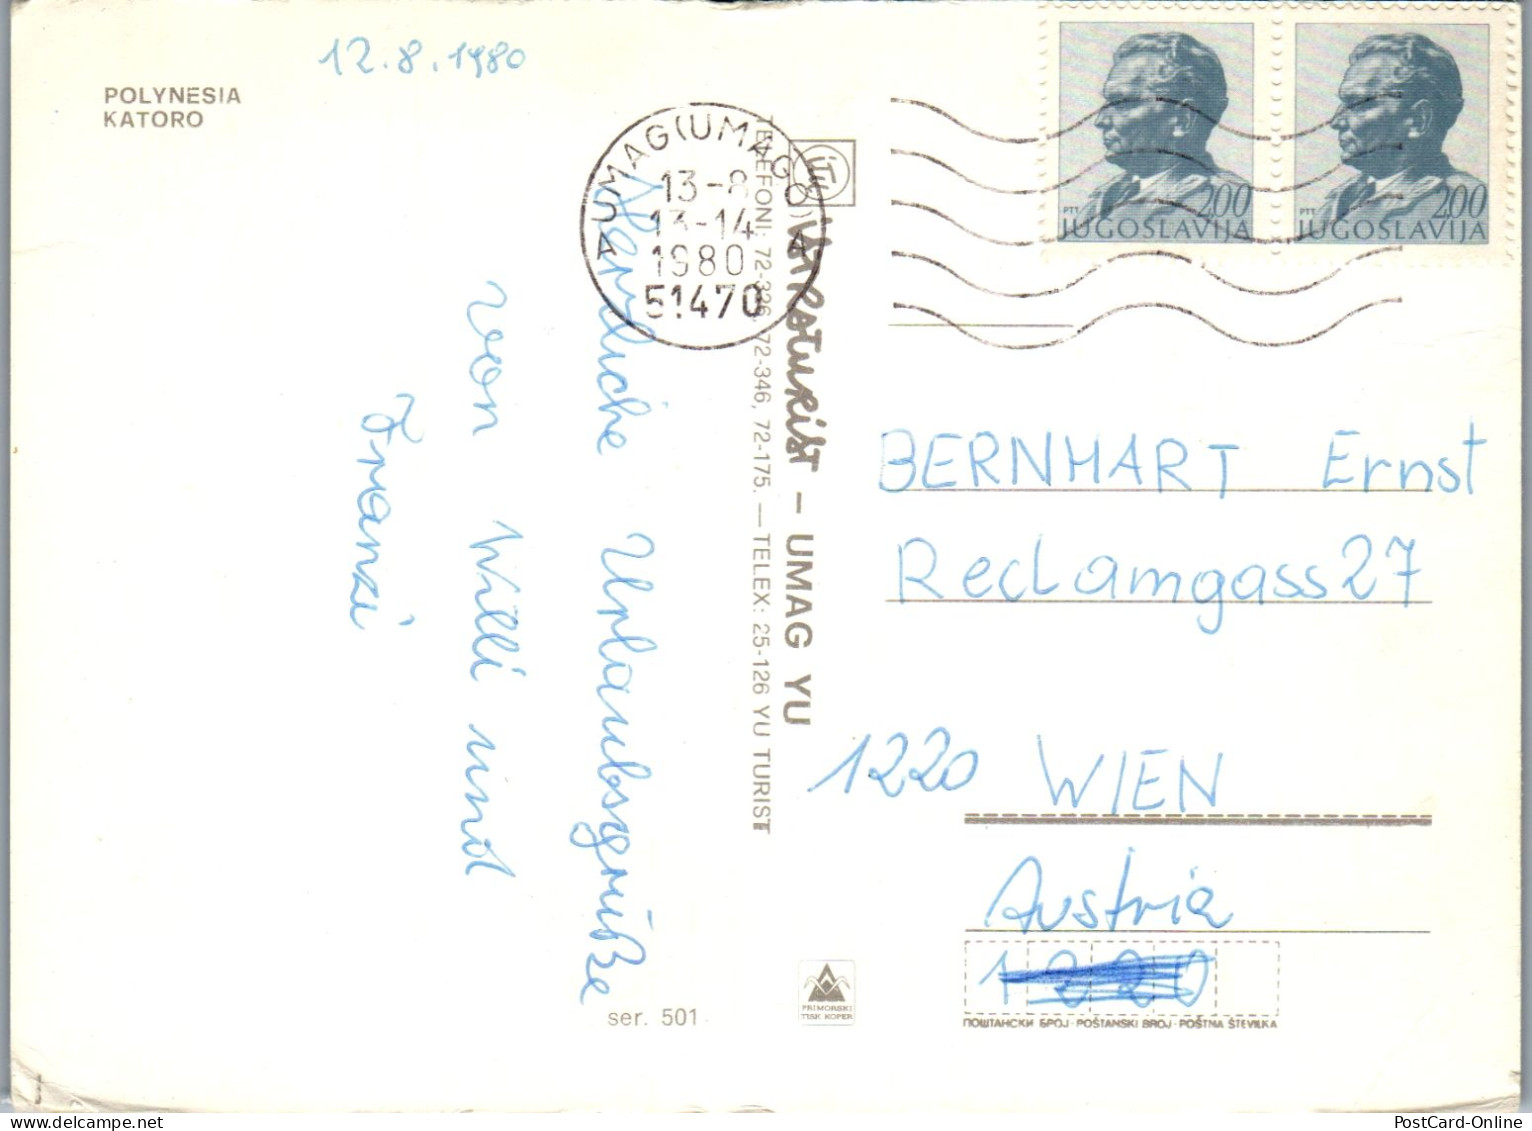 12.8.1980
POLYNESIA
KATORO
UMAG(UMAGO)
13-8
13-14
1980
51470
A A
PTT 2,00
JUGOSLAVIJA
PTT 2,00
JUGOSLAVIJA
Herzliche Urlaubsgrüße
von Willi und
Franzi
TELEFONI: 72-326, 72-346, 72-175. — TELEX: 25-126 YU TURIST
ISTRATURIST – UMAG YU
BERNHART Ernst
Reclamgass 27
1220 WIEN
Austria
1220
ПОШТАНСКИ БРОЈ · POŠTANSKI BROJ · POŠTNA ŠTEVILKA
PRIMORSKI
TISK KOPER
ser. 501
PostCard-Online